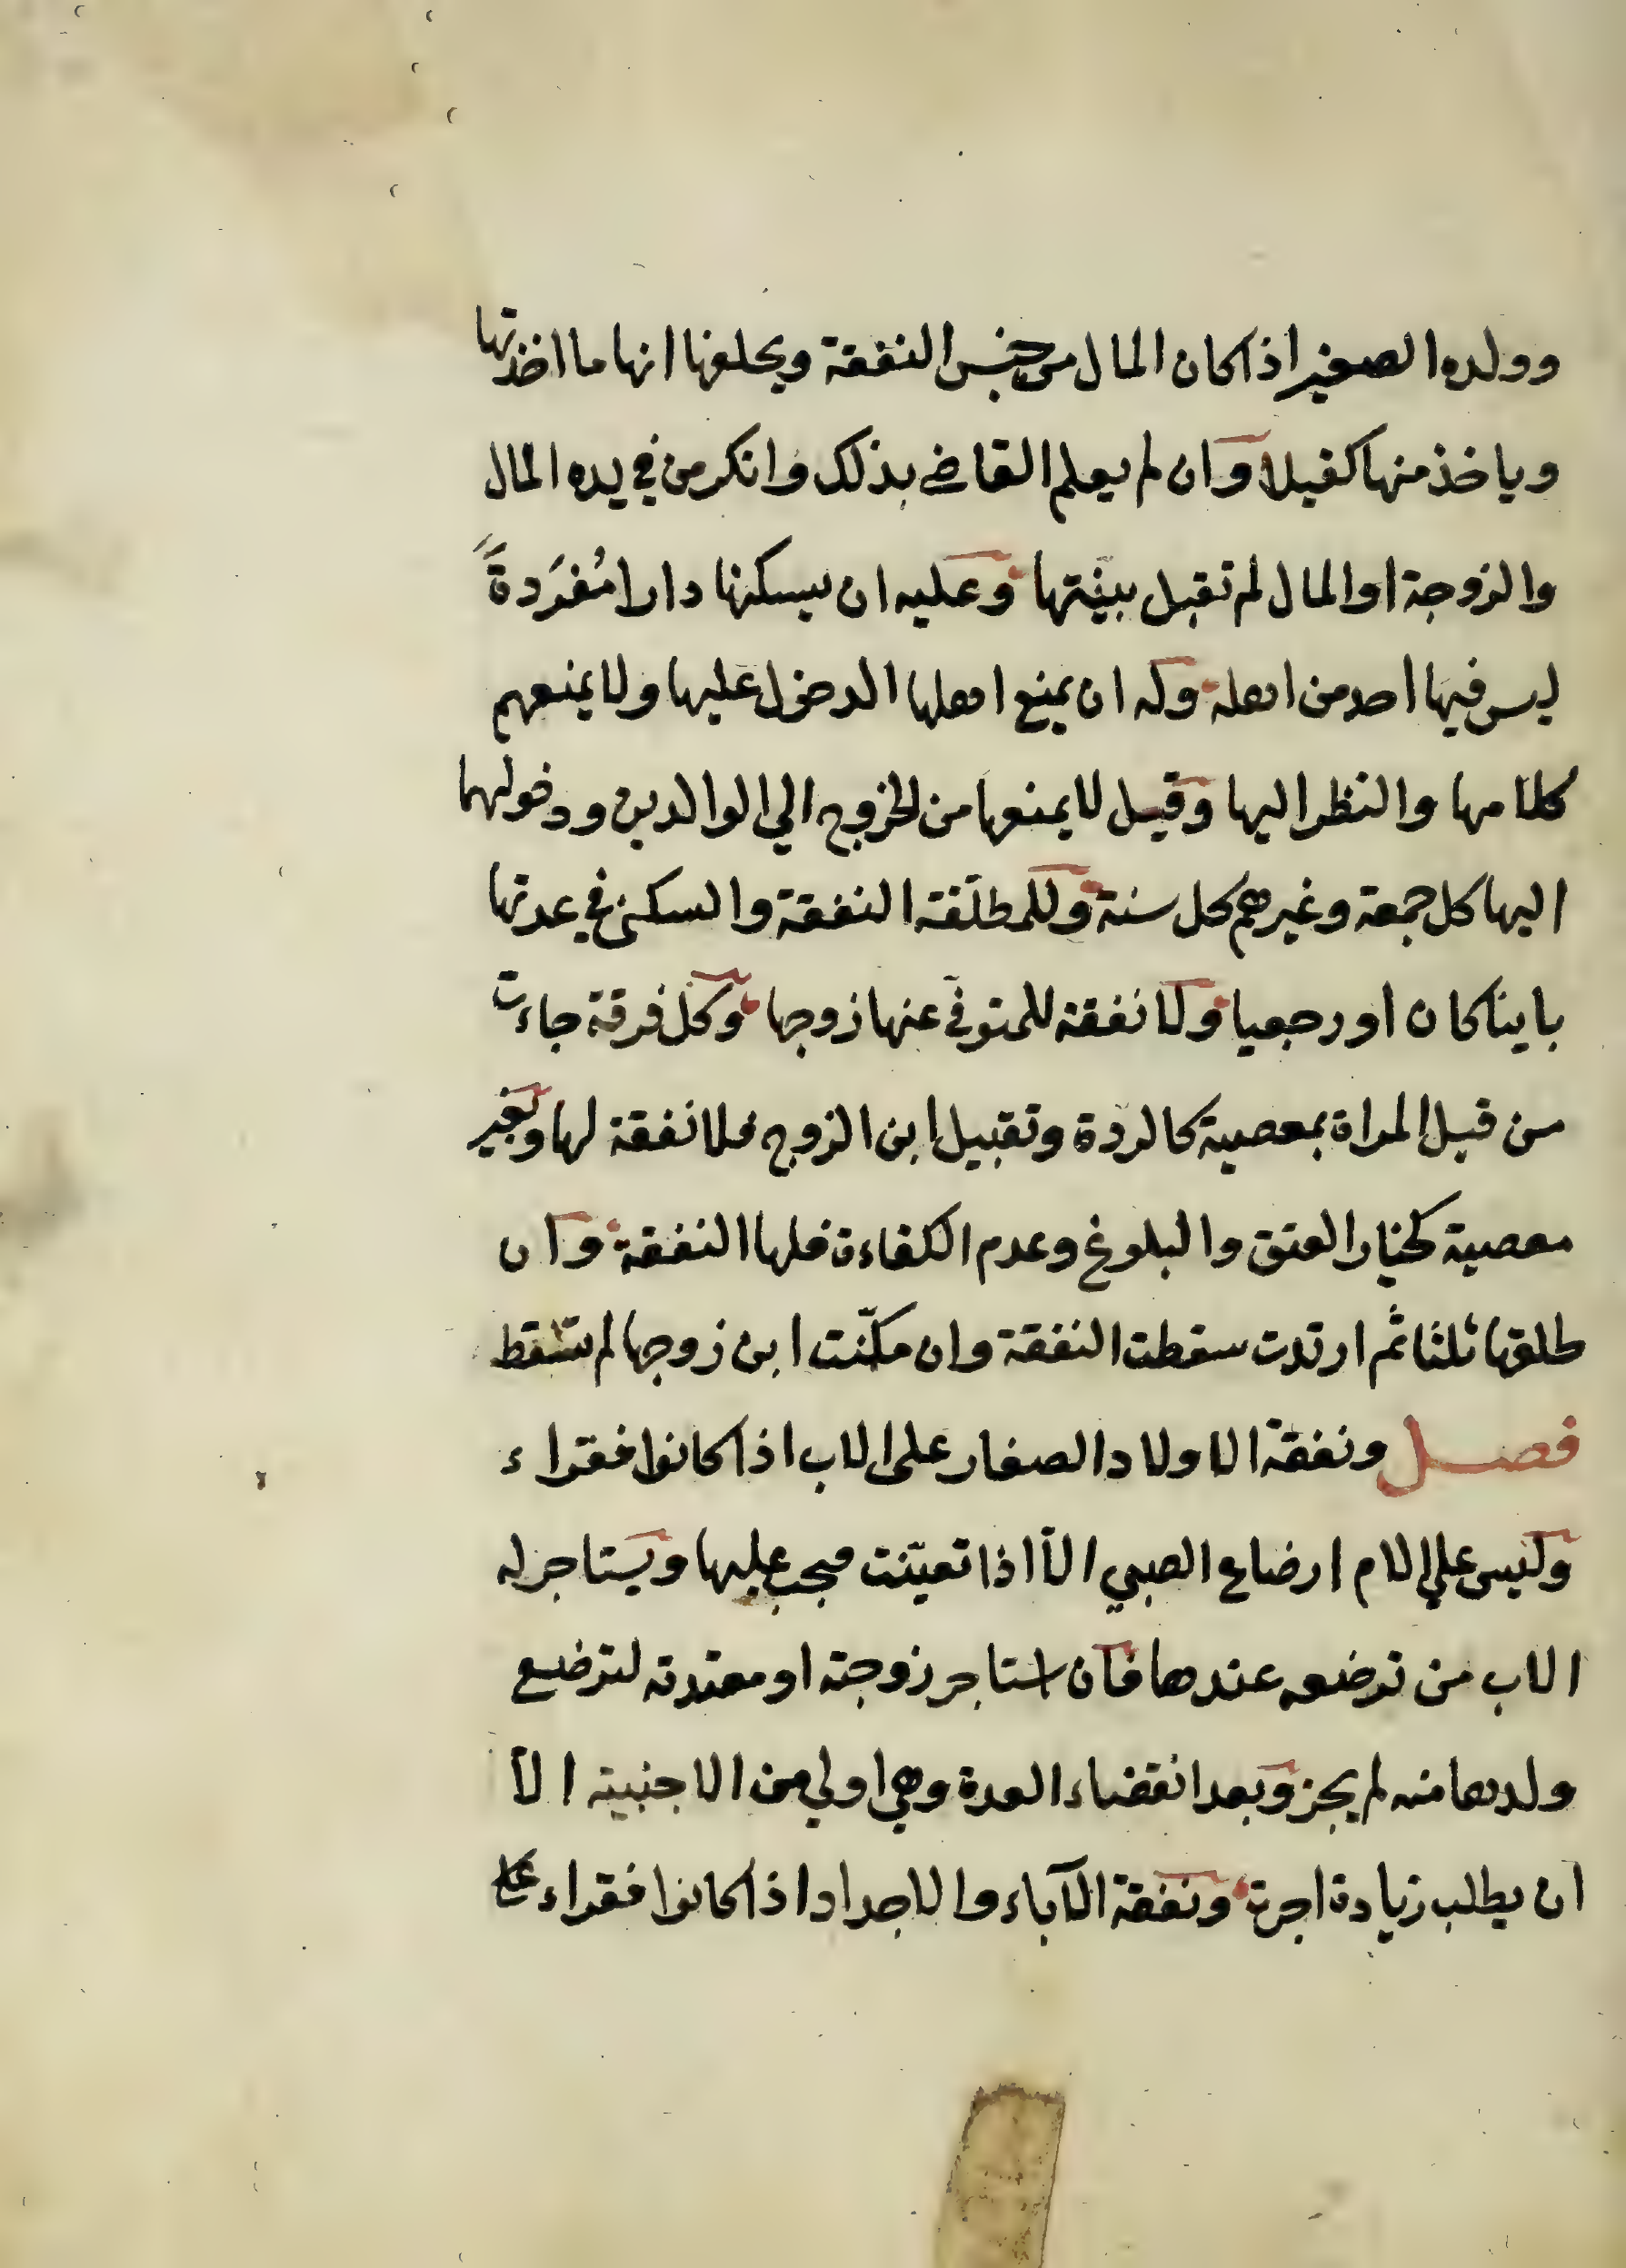 وولده الصغير اذا كان المال من جنس النفقة ويحلفها انها ما اخذتها
وياخذ منها كفيلا وان لم يعلم القاضي بذلك وانكر من في يده المال
والزوجة او المال لم تقبل بيّنتها وعليه ان يسكنها دارا مُفرَدةً
ليس فيها احد من اهله وله ان يمنع اهلها الدخول عليها ولا يمنعهم
كلامها والنظر اليها وقيل لا يمنعها من الخروج الي الوالدين ودخولهما
اليها كل جمعة وغيرهم كل سنة وللمطلّقة النفقة والسكنى في عدتها
باينا كان او رجعيا ولا نفقة للمتوفي عنها زوجها وكل فرقة جاءت
من قبل المراة بمعصية كالردة وتقبيل ابن الزوج فلا نفقة لها وبغير
معصية كخيار العتق والبلوغ وعدم الكفاءة فلها النفقة وان
طلقها ثلثا ثم ارتدت سقطت النفقة وان مكّنت ابن زوجها لم تسقط
فصل ونفقة الاولاد الصغار على الاب اذا كانوا فقراء
وليس علي الام ارضاع الصبي الّا اذا تعيّنت فيجب عليها ويستاجر له
الاب من ترضعه عندها فان استاجر زوجته او معتدته لترضع
ولدها منه لم يجز وبعد انقضاء العدة وهي اولي من الاجنبية الّا
ان يطلب زيادة اجرة ونفقة الآباء والاجداد اذا كانوا فقراء على